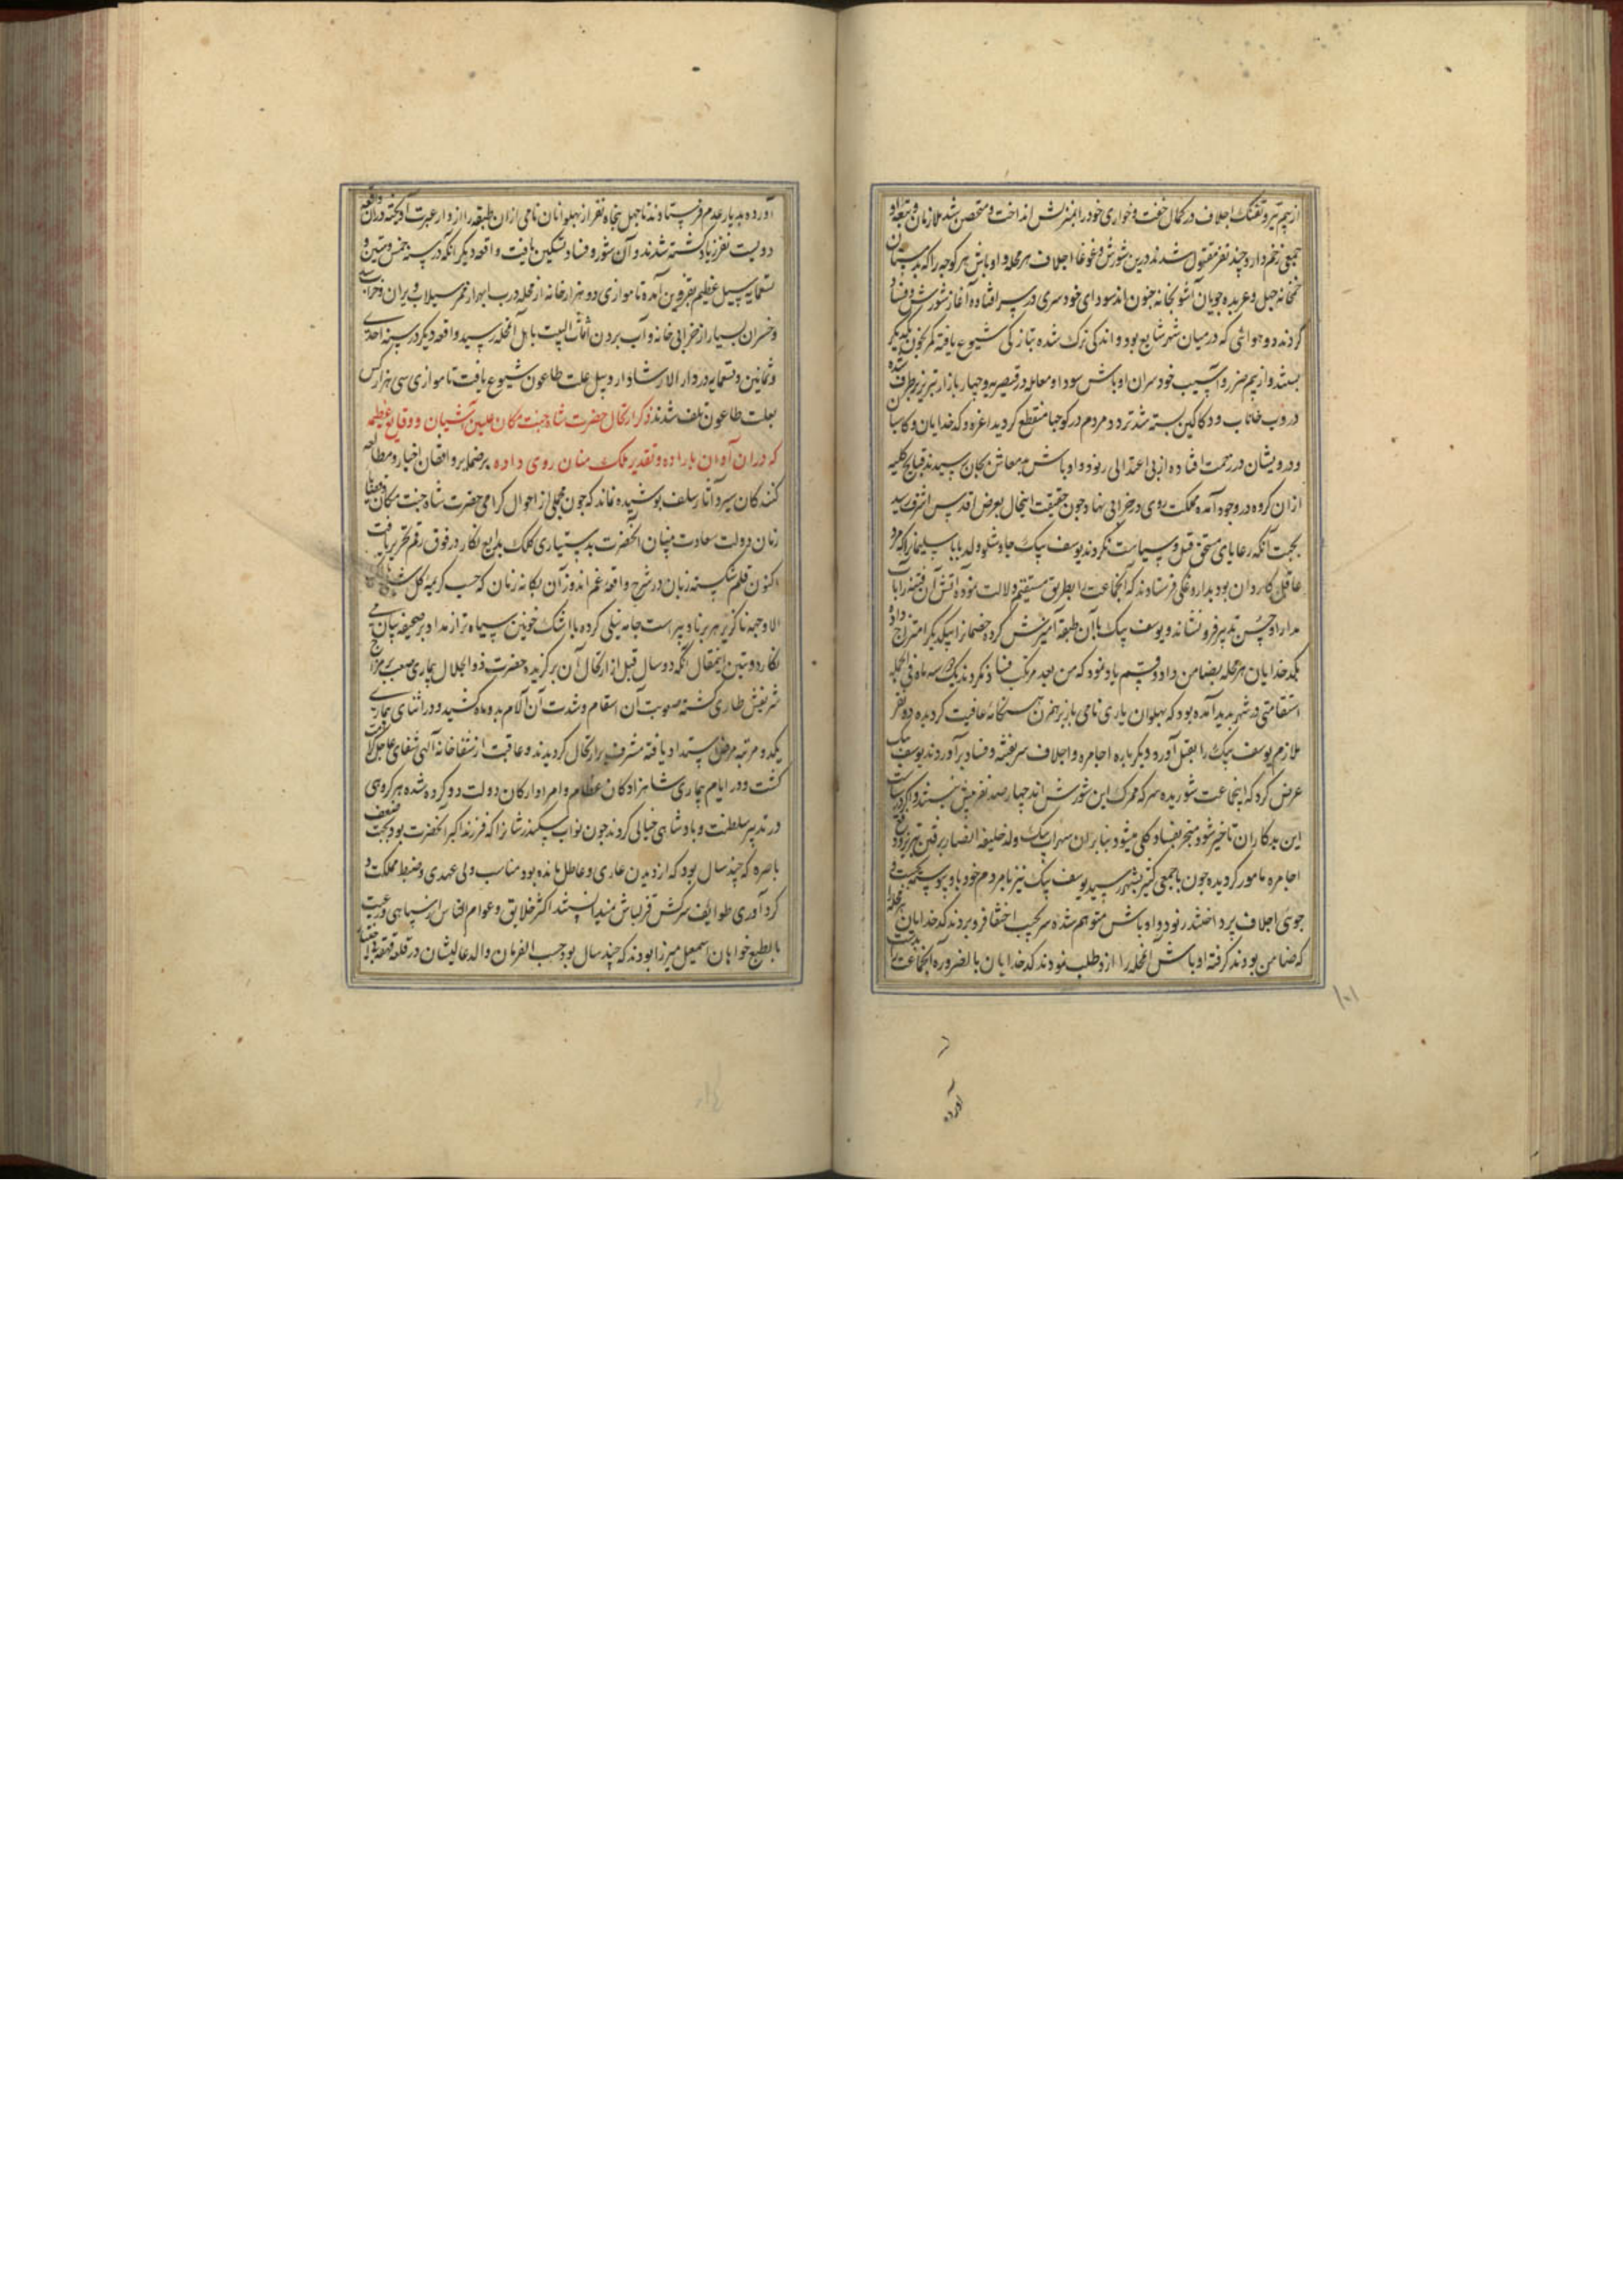 از بیم تیر و تفنک اجلاف در کمال خفت و خواری خود را بمنزلش انداخت و متحصن شد ملازمان و تبعه او
جمعی زخم دار و چند نفر مقتول شدند درین شورش و غوغا اجلاف هر محله و اوباش هر کوچه را که بدبستان
خمخانه جهل و عربده جویان آشوبخانه جنون اند سودای خودسری در سر افتاده آغاز شورش و فساد
کردند و هوائی که در میان شهر شایع بود و اندکی ترک شده بتازکی شیوع یافته کمر بخون یکدیکر
بستند و از بیم ضرر و آسیب خودسران اوباش سودا و معامله در قیصریه و چهار بازار تبریز برطرف شده
دروب خانات و دکاکین بسته شد تردد مردم در کوچها منقطع کردید اعزه و کدخدایان و کاسبان
و درویشان در زحمت افتاده از بی اعتدالی رنود و اوباش بدمعاش بجان رسیدند قبایح کلیه
ازان کروه در وجود آمده مملکت روی در خرابی نهاد چون حقیقت اینحال بعرض اقدس اشرف رسید
بجهت آنکه رعایای مستحق قتل و سیاست نکردند یوسف بیک چاوشلو ولد بابا سلیمانرا که مرد
عاقل کاردان بود بداروغکی فرستادند که آنجماعت را بطریق مستقیم دلالت نموده آتش آن فتنه را بآب
مدارا و حسن تدبیر فرو نشاند و یوسف بیک با آن طبقه آمیزش کرده خصمانرا بیکدیکر امتزاج داد و
بکدخدایان هر محله بضامن داد و قسم یاد نمود که من بعد مرتکب فساد نکردند یک دو سه ماه فی الجمله
استقامتی در شهر پدید آمده بود که پهلوان یاری نامی باز برهمزن هنکامه عافیت کردیده دو نفر
ملازم یوسف بیک را بقتل آورد و دیکر باره اجامره و اجلاف سر بفتنه و فساد برآوردند یوسف بیک
عرض کرد که اینجماعت شوریده سر که محرک این شورش اند چهار صد نفر بیش نیستند و اکر در سیاست
این بدکاران تاخیر شود منجر بفساد کلی میشود بنابران سهراب بیک ولد خلیفه انصار برفتن تبریز و دفع
اجامره مامور کردیده چون با جمعی کثیر بشهر رسید یوسف بیک نیز با مردم خود باو پیوسته بجست و
جوی اجلاف پرداختند رنود و اوباش متوهم شده سر بجیب اختفا فرو بردند کدخدایان هر محله را
که ضامن بودند کرفته اوباش آنمحله را ازو طلب نمودند کدخدایان بالضروره آنجماعت را بدست
۱۰۱
آورده
آورده بدیار عدم فرستادند تا چهل پنجاه نفر از پهلوانان نامی ازان طبقه را از دار عبرت آویخته دران واقعه
دویست نفر زیاد کشته شدند و آن شور و فساد تسکین یافت واقعه دیکر آنکه در سنه خمس و ستین و
تسعمایه سیل عظیم بقزوین آمده تا موازی دو هزار خانه از محله درب ابهر از ممر سیلاب ویران و خراب
و خسران بسیار از خرابی خانه و آب بردن اثاث البیت باهل آنمحله رسید واقعه دیکر در سنه احدی
و ثمانین و تسعمایه در دار الارشاد اردبیل علت طاعون شیوع یافت تا موازی سی هزار کس
بعلت طاعون تلف شدند ذکر ارتحال حضرت شاه جنت مکان علیین آشیان و وقایع عظیمه
که دران آوان باراده و تقدیر ملک منان روی داده بر ضمایر واقفان اخبار و مطالعه
کنندکان سیر و آثار سلف پوشیده نماند که چون مجملی از احوال کرامی حضرت شاه جنت مکان و قضایا
زمان دولت سعادت بنیان آنحضرت بدستیاری کلک بدایع نکار در فوق رقم تحریر یافت
اکنون قلم شکسته زبان در شرح واقعه غم اندوز آن یکانه زمان که حسب کریمه کل شی هالک
الا وجهه ناکزیر هر برنا و پیر است جامه نیلی کرده با اشک خونین سیاه تر از مداد بر صحیفه بیان می
نکارد و تبین اینمقال آنکه دو سال قبل از ارتحال آن برکزیده حضرت ذو الجلال بیماری صعب بر مزاج
شریفش طاری کشته صعوبت آن اسقام و شدت آن آلام بدو ماه کشید و در اثنای بیماری
یکدو مرتبه مرض اشتداد یافته مشرف بر ارتحال کردیدند و عاقبت از شفاخانه آلهی شفای عاجل کرامت
کشت و در ایام بیماری شاهزادکان عظام و امرا و ارکان دولت دو کروه شده هر کروهی
در تدبیر سلطنت و بادشاهی خیالی کردند چون نواب سکندرشان را که فرزند اکبر آنحضرت بود بجهت ضعف
باصره که چند سال بود که از دیدن عاری و عاطل مانده بود مناسب ولی عهدی و ضبط مملکت و
کردآوری طوایف سرکش قزلباش نمیدانستند اکثر خلایق و عوام الناس از سپاهی و رعیت
بالطبع خواهان اسمعیل میرزا بودند که چند سال بود حسب الفرمان والد عالیشان در قلعه قهقهه